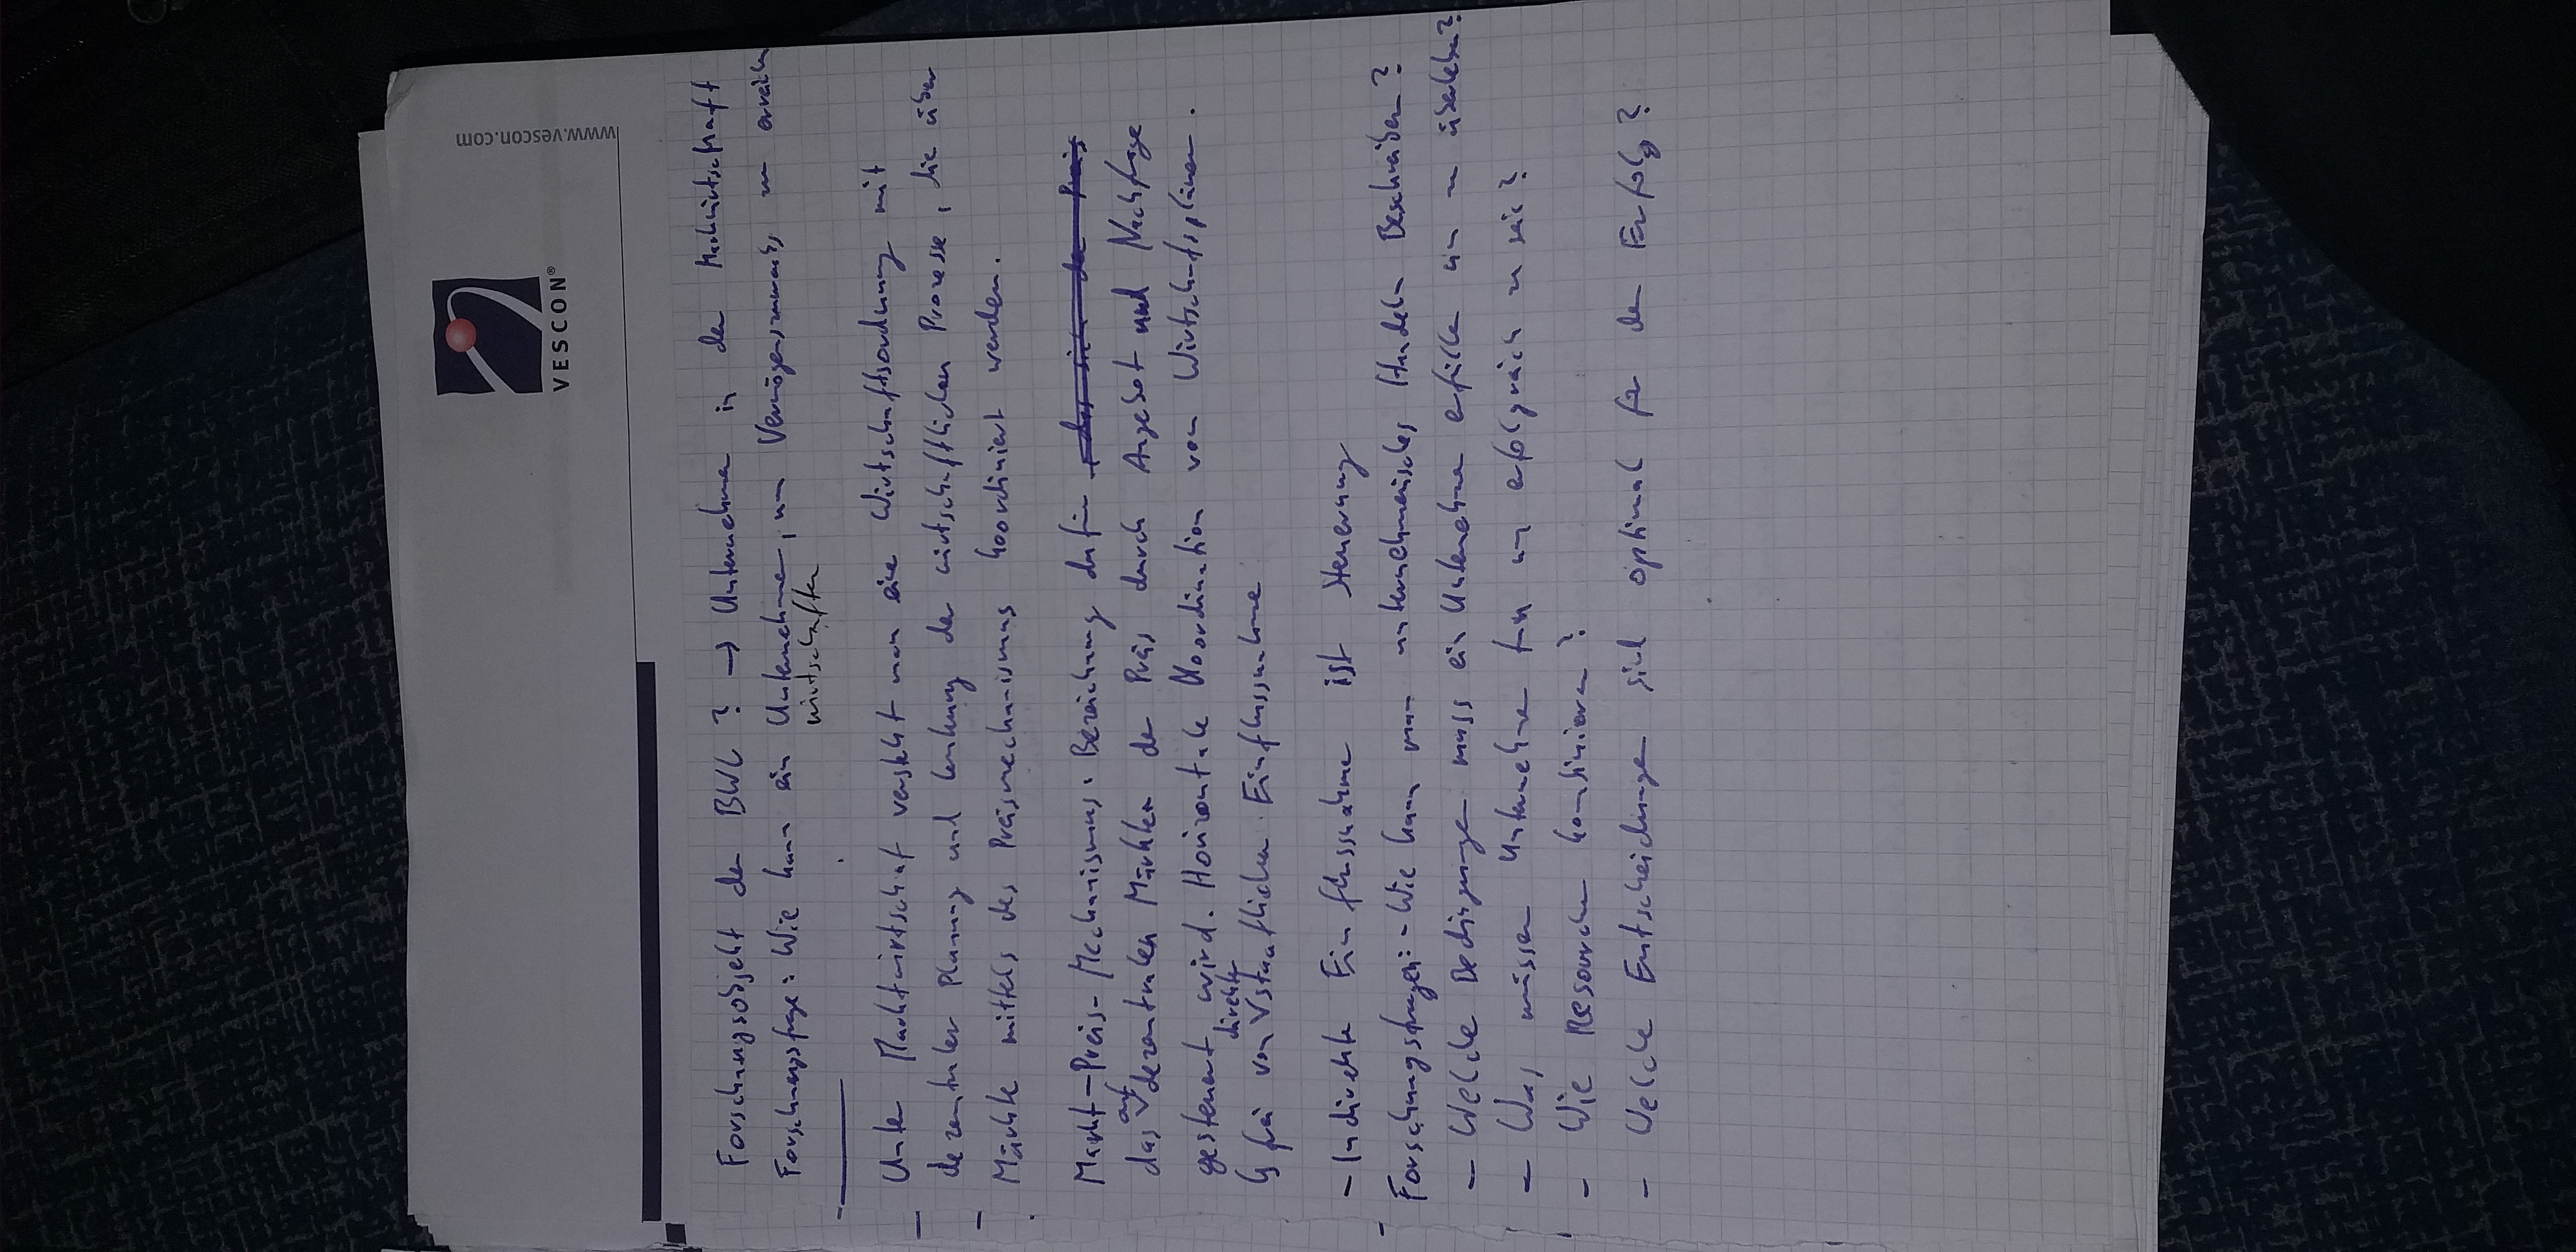 VESCON®
www.vescon.com
Forschungsobjekt der BWL ? → Unternehmen in der Marktwirtschaft
Forschungsfrage: Wie kann ein Unternehmen, um Vermögenszuwachs zu erreichen
wirtschaften
Unter Marktwirtschaft versteht man eine Wirtschaftsordnung mit
dezentraler Planung und Lenkung der wirtschaftlichen Prozesse, die über
Märkte mittels des Preismechanismus koordiniert werden.
Markt-Preis-Mechanismus: Bezeichnung dafür , das sich der Preis
das auf dezentralen Märkten der Preis durch Angebot und Nachfrage
gesteuert wird. Horizontale Koordination von Wirtschaftsplänen.
↳ frei von direkter staatlichen Einflussnahme
- Indirekte Einflussnahme ist Steuerung
Forschungsfragen: - Wie kann man unternehmerisches Handeln Beschreiben?
- Welche Bedingungen muss ein Unternehmen erfüllen um zu überleben?
- Was müssen Unternehmen tun um erfolgreich zu sein?
- Wie Resourcen kombinieren?
- Welche Entscheidungen sind optimal für den Erfolg?